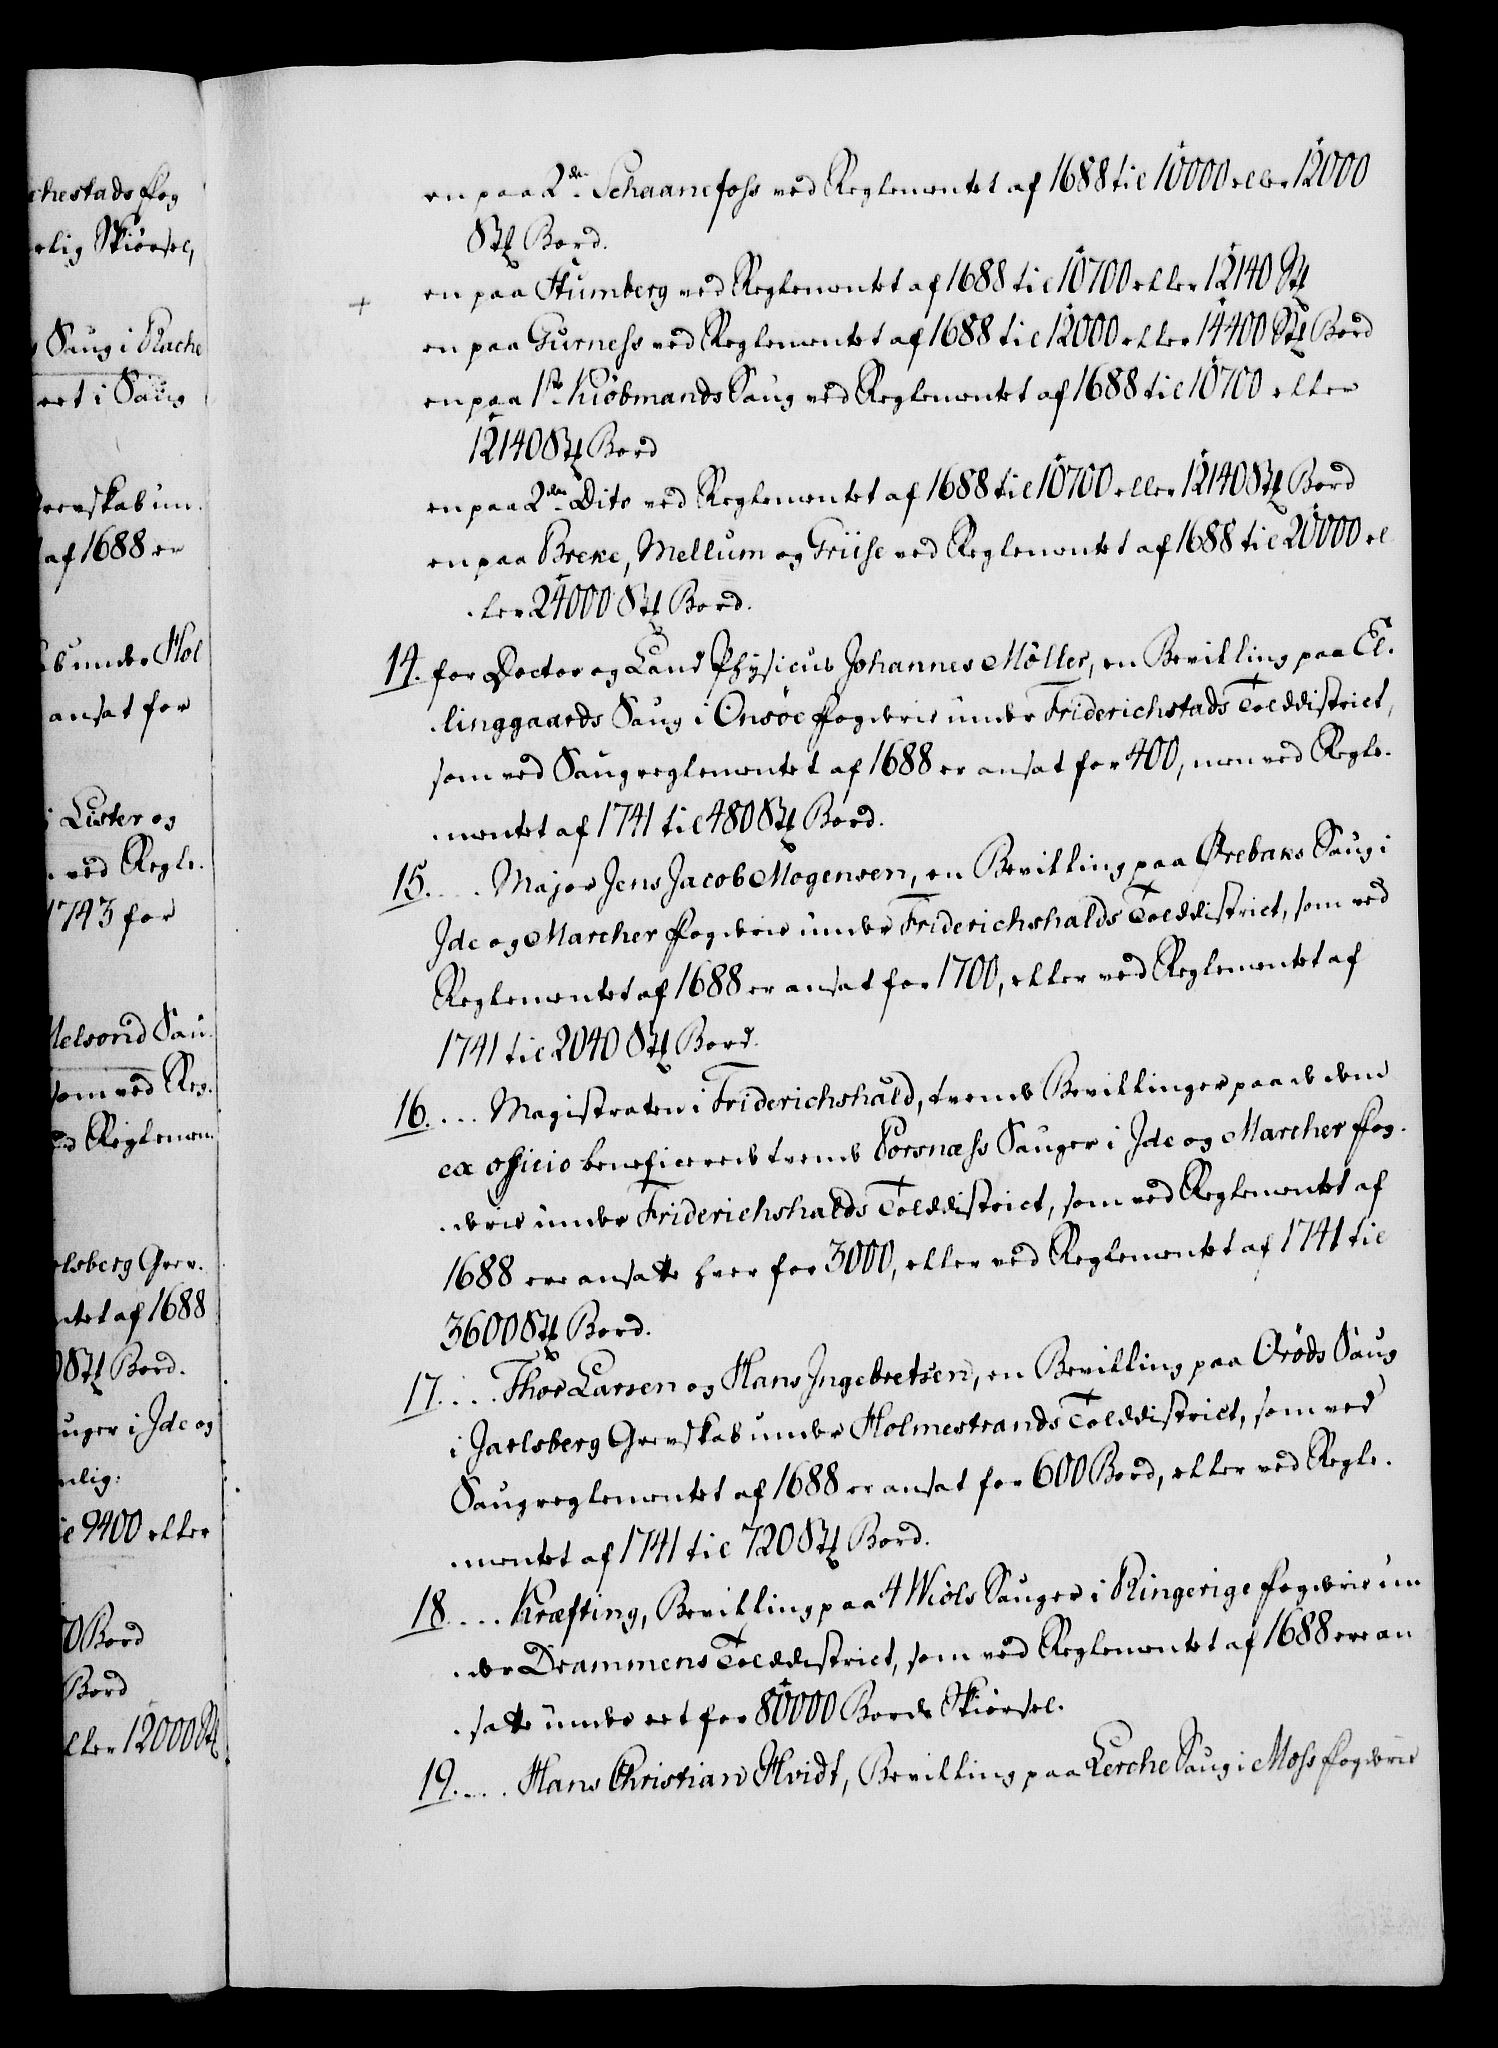 chestads Fog
rlig Skiørsel,
Saug i Rache
eet i Saug
revskab un.
af 1688 er
under Hol
ansat for
i Lister og
ved Regle.
1743 for
Melsorid Sau.
som ved Reg.
Reglemen.
rlsberg Grev.
ntet af 1688
Stk Bord.
auger i Jde og
mlig:
9400 eller
0 Bord
Bord
eller 12000 Stk
en paa 2den Schaanefoss ved Reglementet af 1688 til 10000 eller 12000
Stk Bord.
en paa Stumberg ved Reglementet af 1688 til 10700 eller 12140 Stk
en paa Gurness ved Reglementet af 1688 til 12000 eller 14400 Stk Bord
en paa 1ste Kiöbmands Saug ved Reglementet af 1688 til 10700 eller
12140 Stk Bord
en paa 2den Dito ved Reglementet af 1688 til 10700 eller 12140 Stk Bord
en paa Breke, Mellum og Griise ved Reglementet af 1688 til 20000 el
ler 24000 Stk Bord.
14. for Doctor og Land Physicus Johannes Möller, en Bevilling paa El.
linggaards Saug i Onsöe Fogderie under Friderichstads Tolddistrict,
som ved Saugreglementet af 1688 er ansat for 400, men ved Regle.
mentet af 1741 til 480 Stk Bord.
15. . . . Major Jens Jacob Mogensen, en Bevilling paa Ørebaks Saug i
Jde og Marcher Fogderie under Friderichshalds Tolddistrict, som ved
Reglementet af 1688 er ansat for 1700, eller ved Reglementet af
1741 til 2040 Stk Bord.
16. . . . Magistraten i Friderichshald, tvende Bevillinger paa de dem
ex officio beneficerede tvende Porsnæss Sauger i Jde og Marcher Fog.
derie under Friderichshalds Tolddistrict, som ved Reglementet af
1688 ere ansatte hver for 3000, eller ved Reglementet af 1741 til
3600 Stk Bord.
17. . . . Thor Larsen og Hans Jngebretsen, en Bevilling paa Oröds Saug
i Jarlsberg Grevskab under Holmestrands Tolddistrict, som ved
Saugreglementet af 1688 er ansat for 600 Bord, eller ved Regle.
mentet af 1741 til 720 Stk Bord.
18. . . . Kræfting, Bevilling paa 4 Wiöls Sauger i Ringerige Fogderie un
der Drammens Tolddistrict, som ved Reglementet af 1688 ere an
satte under eet for 80000 Bords Skiørsel.
19. . . . Hans Christian Hvidt, Bevilling paa Lerche Saug i Moss Fogderie